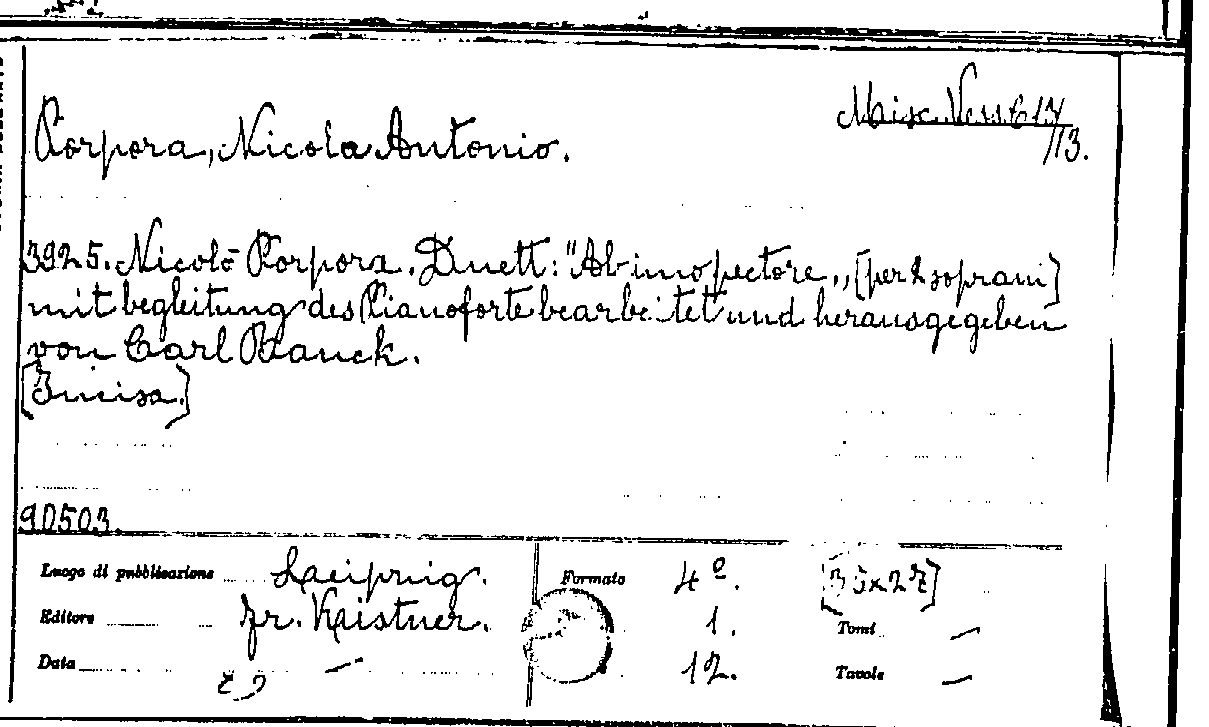 Porpora, Nicola Antonio.
Misc. Vess C 17/13.
3925. Nicolò Porpora. Duett: "Ab imo pectore,, [per 2 soprani]
mit begleitung des Pianoforte bearbeitet und herausgegeben
von Carl Banck.
[Incisa.]
90503.
Luogo di pubblicazione Laeipzig. Formato 4º. [35x27]
Editore Fr. Kistner. 1. Tomi —
Data — 12. Tavole —